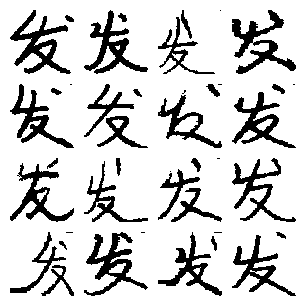 发发发发
发发发发
发发发发
发发发发